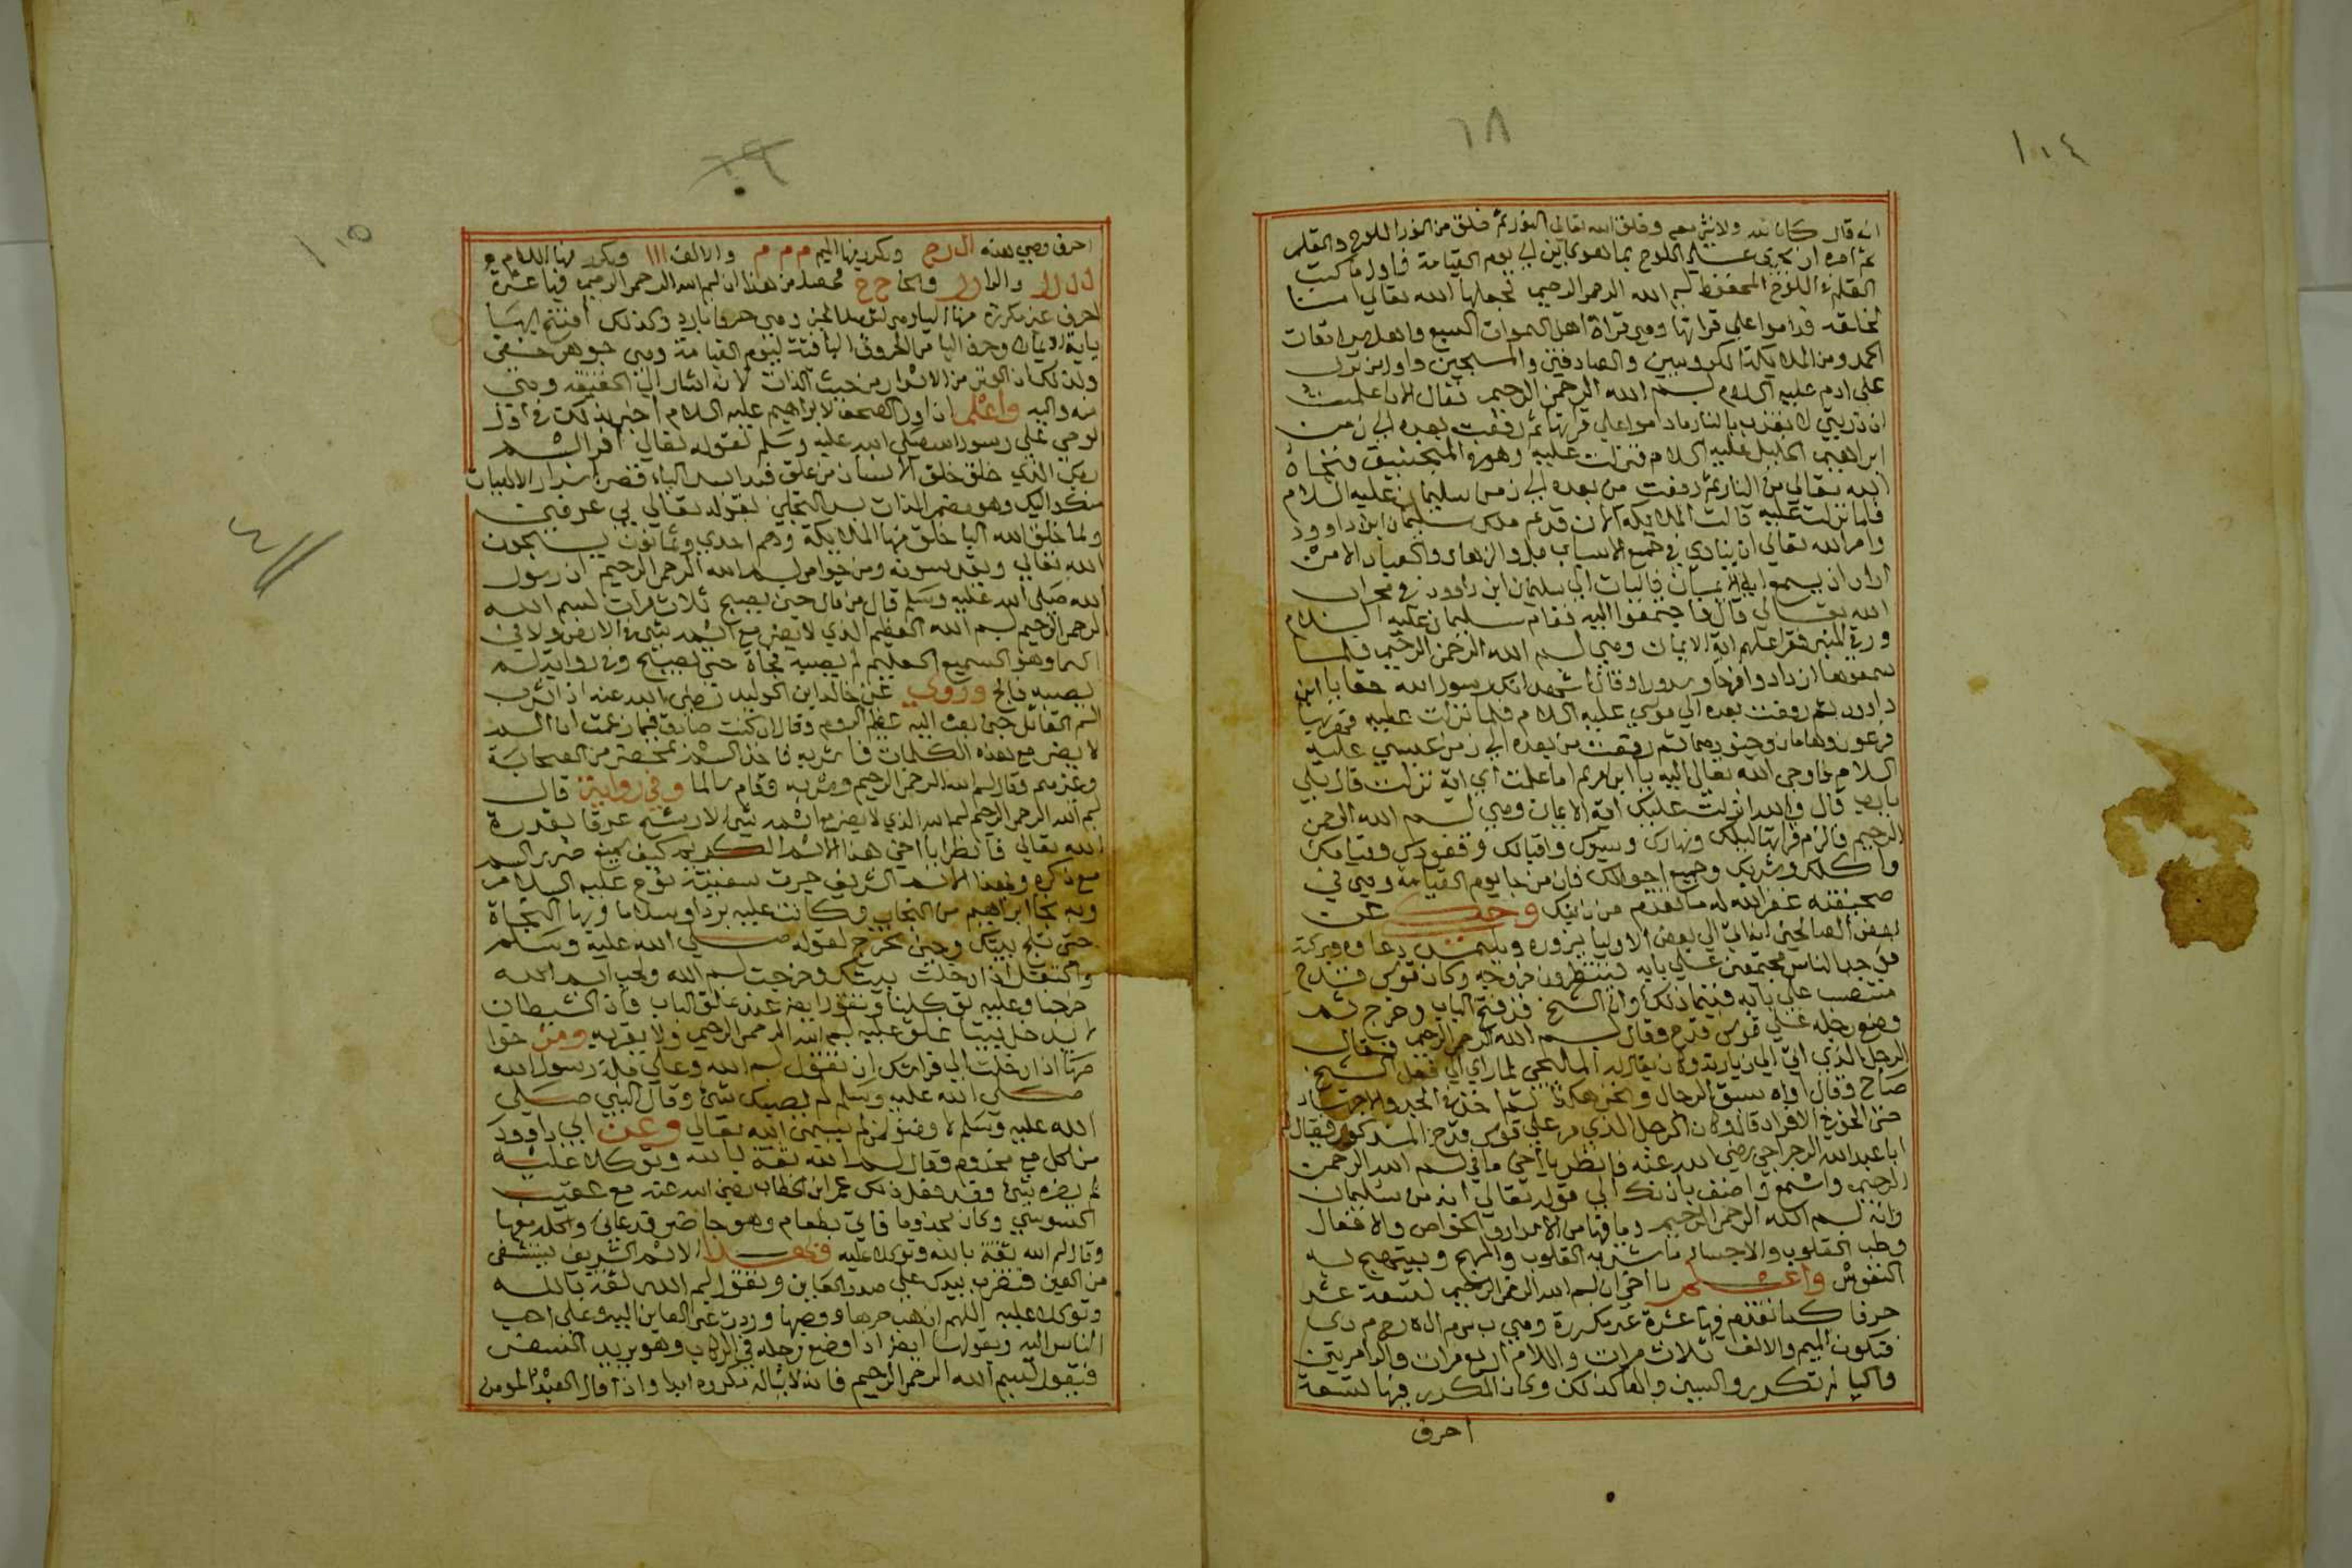 ١٠٤
٦٨
انه قال كان الله ولا شئ معه وخلق الله تعالى النور ثم خلق من النور اللوح والقلم
ثم امره ان يجري على اللوح بما هو كاين الى يوم القيامة فاول ما كتب
القلم في اللوح المحفوظ بسم الله الرحمن الرحيم فجعلها الله تعالى امنا
لخلقه فداموا على قراتها وهي قراة اهل السموات السبع واهل سرادقات
المجد ومن الملايكة الكروبيين والصادقين والمسبحين واول من نزلت
على ادم عليه السلام بسم الله الرحمن الرحيم فقال الان علمت
ان ذريتي لا تعذب بالنار ماداموا على قراتها ثم رفعت بعده الى زمن
ابراهيم الخليل عليه السلام فنزلت عليه وهو في المنجنيق فنجاه
الله تعالى من النار ثم رفعت من بعده الى زمن سليمان عليه السلام
فلما نزلت عليه قالت الملايكة الان قد تم ملك سليمان ابن داوود
وامر الله تعالى ان ينادي في جميع الاسباط والزهاد والعباد الا من
اراد ان يسمع اية الايمان فاليات الى سليمان ابن داوود في محراب
الله تعالى قال فاجتمعوا اليه فقام سليمان عليه السلام
ورقي المنبر فقرا عليهم اية الايمان وهي بسم الله الرحمن الرحيم فلما
سمعوها ازدادوا فرحا وسرورا وقالوا نشهد انك رسول الله حقا يا ابن
داوود ثم رفعت بعده الى موسى عليه السلام فلما نزلت عليه قهر بها
فرعون وهامان وجنودهما ثم رفعت من بعده الى زمن عيسى عليه
السلام فاوحى الله تعالى اليه يا ابن مريم اما علمت اي اية نزلت قال بلى
يارب قال والله انزلت عليك اية الايمان وهي بسم الله الرحمن
الرحيم فالزم قراتها ليلك ونهارك وسيرك واقبالك وقعودك وقيامك
واكلك وشربك وجميع احوالك فان من جا يوم القيامة وهي في
صحيفته غفر الله له ما تقدم من ذنبه وحكي عن
بعض الصالحين انه اتى الى بعض الاوليا يزوره ويلتمس دعاوه وبركته
فوجد الناس مجتمعين على بابه ينتظرون خروجه وكان قوس قدح
منتصب على بابه فبينما ذلك وان الشيخ قد فتح الباب وخرج ثم
وضع رجله على قوس قدح وقال بسم الله الرحمن الرحيم فقال
الرجل الذي اتى الى زيارته وكان يقال له المالحي لما راى الى فعل الشيخ
صاح وقال اواه سبق الرجال ونحن هكذا ثم اخذ في الجد والاجتهاد
حتى الافراد قال وكان الرجل الذي مر على قوس قدح المذكور فقال له
ابا عبد الله الرجراجي رضي الله عنه فانظر يا اخي ما في بسم الله الرحمن
الرحيم واسمع واصغ باذنك الى قوله تعالى انه من سليمان
وانه بسم الله الرحمن الرحيم وما فيها من الاسرار والخواص والافعال
وطب القلوب والاجساد ما سر به القلوب والمهج ويبتهج به
النفوس واعلم يا اخي ان بسم الله الرحمن الرحيم تسعة عشر
حرفا كما تقدم فيها عشرة غير مكررة وهي ب س م ا ل ه ر ح م ن ي
فتكون الميم والالف ثلاث مرات واللام اربع مرات والرا مرتين
واليا لم تتكرر والسين والها كذلك وكان المكرر فيها تسعة
احرف
١٠٥
٦٩
احرف وهي هذه ا ل ر ح م ويكرر فيها الميم م م م والالف ا ا ا ويكرر فيها اللام
ل ل ل ل والرا ر ر والحا ح ح فحصل من هذا ان بسم الله الرحمن الرحيم فيها عشرة
احرف غير مكررة منها
ولذلك كان السر من الاسرار من حيث الذات لانه اشار الى الحقيقة وهي
منه واليه واعلم ان اول الصحف لابراهيم عليه السلام اخبر بذلك في اول
لوحي على رسول الله صلى الله عليه وسلم بقوله تعالى اقرا باسم
ربك الذي خلق خلق الانسان من علق
ولما خلق الله البا خلق منها الملايكة وهم احدى وثمانون يسبحون
الله تعالى ويقدسونه ومن خواص بسم الله الرحمن الرحيم ان رسول
الله صلى الله عليه وسلم قال من قال حين يصبح ثلاث مرات بسم الله
الرحمن الرحيم بسم الله العظيم الذي لا يضر مع اسمه شئ في الارض ولا في
السما وهو السميع العليم لم يصبه فجاة حتى يصبح وفي رواية لم
يصبه فالج وروي عن خالد ابن الوليد رضي الله عنه اذ اشرب
السم القاتل حين بعث اليه عظيم الروم وقال ان كنت صادق فيما زعمت ان السم
لا يضر مع هذه الكلمات فاشربه فاخذ السم بمحضر من الصحابة
وغيرهم وقال بسم الله الرحمن الرحيم وشربه وقام سالما وفي رواية قال
بسم الله الرحمن الرحيم بسم الله الذي لا يضر مع اسمه شئ لا رشح عرقا بقدرة
الله تعالى فانظر يا اخي هذا الاسم الكريم كيف يمنع ضرر السم
مع ذكره وبهذا الاسم الشريف جرت سفينة نوح عليه السلام
وبه نجا ابراهيم من النار وكانت عليه بردا وسلاما وبها النجاة
حين تلج بيتك وحين تخرج لقوله صلى الله عليه وسلم
واكتفل اذا دخلت بيتك وخرجت بسم الله ولجنا بسم الله
خرجنا وعليه توكلنا وتقول ايضا عند غلق الباب فان الشيطان
لا يدخل بيتا غلق عليه بسم الله الرحمن الرحيم ولا يقربه ومن خوا
صها اذا دخلت الى فراشك ان تقول بسم الله وعلى ملة رسول الله
صلى الله عليه وسلم لم يصبك شئ وقال النبي صلى
الله عليه وسلم لا وضوء لمن لم يسمي الله تعالى وعن ابي داوود
من اكل مع مجذوم وقال بسم الله ثقة بالله وتوكلا عليه
لم يضره شئ وقد فعل ذلك عمر ابن الخطاب رضي الله عنه مع
وكان مجذوما فاتي بطعام وهو حاضر فدعاه واكل معه
وقال بسم الله ثقة بالله وتوكلا عليه وبهذا الاسم الشريف يستشفى
من العين فتضرب بيدك على صدر العاين وتقول بسم الله ثقة بالله
وتوكلا عليه اللهم اذهب حرها ووصبها وردت عين العاين اليه وعلى احب
الناس اليه ويقولها ايضا اذا وضع رجله في الركاب وهو يريد السفر
فيقول بسم الله الرحمن الرحيم فانه لا يناله مكروه ابدا واذا قال العبد المومن